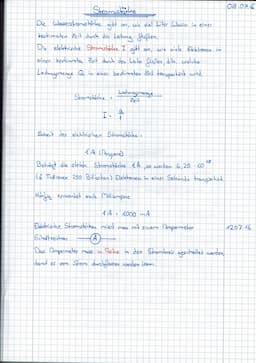 Stromstärke
08.07.16
Die Wasserstromstärke gibt an, wie viel Liter Wasser in einer
bestimmten Zeit durch die Leitung fließen.
Die elektrische Stromstärke I gibt an, wie viele Elektronen in
einer bestimmten Zeit durch den Leiter fließen, d.h. welche
Ladungsmenge Q in einer bestimmten Zeit transportiert wird.
Stromstärke = Ladungsmenge / Zeit
I = Q / t
Einheit der elektrischen Stromstärke:
1 A (Ampere)
Beträgt die elektr. Stromstärke 1 A, so werden 6,25 · 10^18
(6 Trillionen 250 Billiarden) Elektronen in einer Sekunde transportiert.
Häufig verwendet auch Milliampere
1 A = 1000 mA
Elektrische Stromstärken misst man mit einem Amperemeter
12.07.16
Schaltzeichen: A
Das Amperemeter muss in Reihe in den Stromkreis geschaltet werden,
damit es vom Strom durchflossen werden kann.